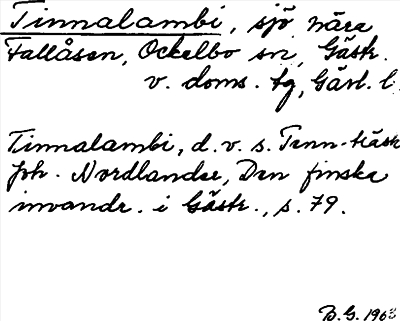 Tinnalambi, sjö nära
Fallåsen, Ockelbo sn, Gästr.
v. doms. tg, Gävl. l.
Tinnalambi, d. v. s. Tenn-träsk
Joh. Nordlander, Den finska
invandr. i Gästr., s. 79.
B.G. 1963